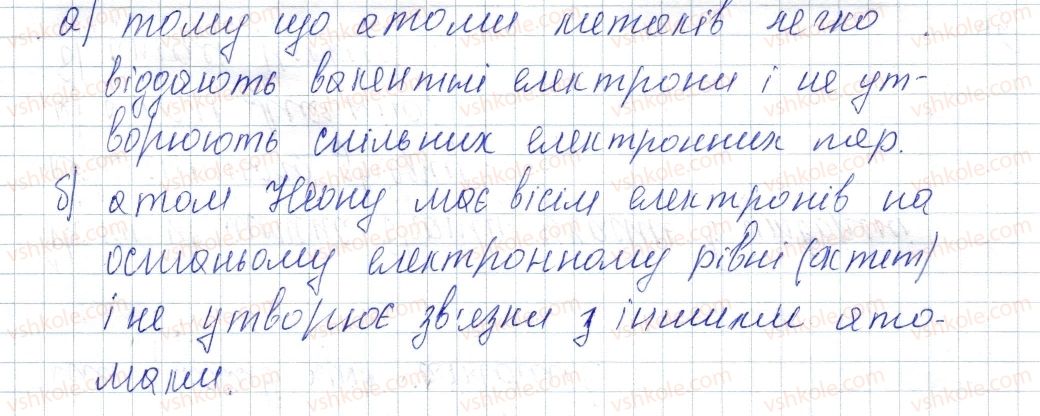 а) тому що атоми металів легко
віддають валентні електрони і не ут-
ворюють спільних електронних пар.
б) атом Неону має вісім електронів на
останьому електронному рівні (октет)
і не утворює зв'язки з іншими ато-
мами.